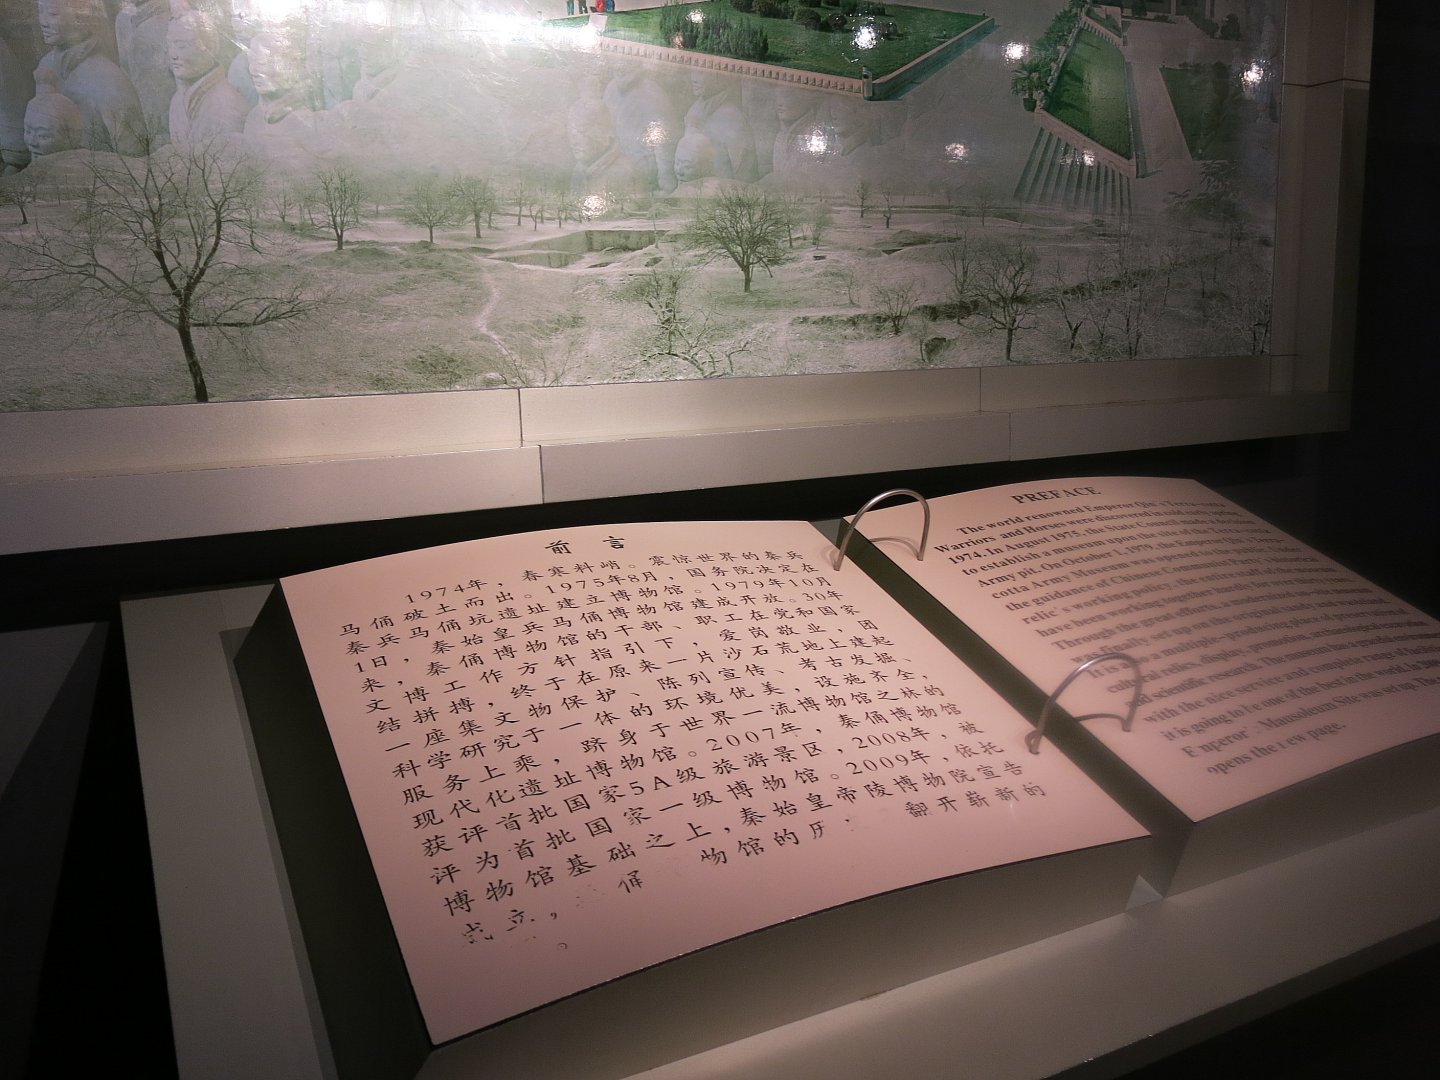 前言
1974年，春寒料峭。震惊世界的秦兵
马俑破土而出。1975年8月，国务院决定在
秦兵马俑坑遗址建立博物馆。1979年10月
1日，秦始皇兵马俑博物馆建成开放。30年
来，秦俑博物馆的干部、职工在党和国家
文博工作方针指引下，爱岗敬业、团
结拼搏，终于在原来一片沙石荒地上建起
一座集文物保护、陈列宣传、考古发掘、
科学研究于一体的环境优美，设施齐全，
服务上乘，跻身于世界一流博物馆之林的
现代化遗址博物馆。2007年，秦俑博物馆
获评首批国家5A级旅游景区，2008年，被
评为首批国家一级博物馆。2009年，依托
博物馆基础之上，秦始皇帝陵博物院宣告
成立，物馆的历翻开崭新的
。
PREFACE
The world renowned Emperor Qin's Terra-cotta
Warriors and Horses were discovered in
1974. In August 1975, the State Council made a decision
to establish a museum upon the site of the Terra-cotta
Army pit. On October 1, 1979, the Emperor Qin's Terra-
cotta Army Museum was opened to the public. Under
the guidance of Chinese Communist Party and the
relic's working policy, the entire staff of the museum
have been working together
Through the great efforts, a modernized
was finally set up on the
It is also a multi-
cultural relics, display, promotion, archaeological excavation
and scientific research. The museum has a graceful environment
with the nice service and complete range of facilities
it is going to be one of the best in the world. In
Emperor Mausoleum Site was set up. The
opens the new page.